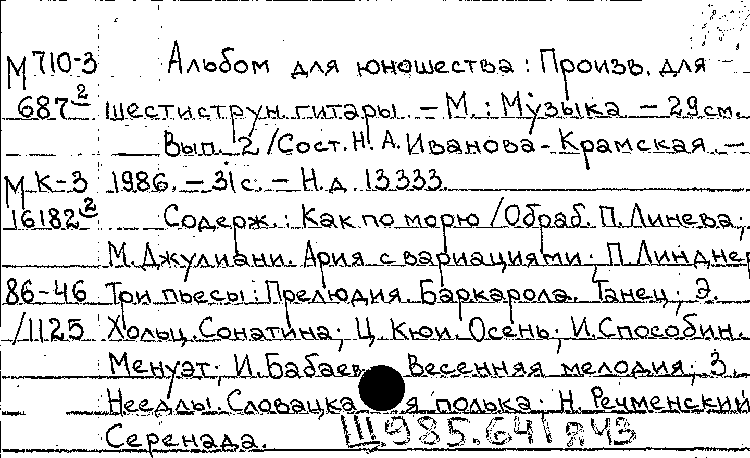 М 710-3 Альбом для юношества : Произв. для
687² шестиструн. гитары. – М. : Музыка – 29 см.
Вып. 2 / Сост. Н. А. Иванова-Крамская. –
М К-3 1986. – 31 с. – Н. д. 13333.
16182² Содерж. : Как по морю / Обраб. П. Линева;
М. Джулиани. Ария с вариациями; П. Линднер
86-46 Три пьесы: Прелюдия. Баркарола. Танец; Э.
/1125 Хольц. Сонатина; Ц. Кюи. Осень; И. Способин.
Менуэт; И. Бабаев. Весенняя мелодия; З.
Нееллы. Словацкая полька; Н. Речменский
Серенада. Щ985.641 я43